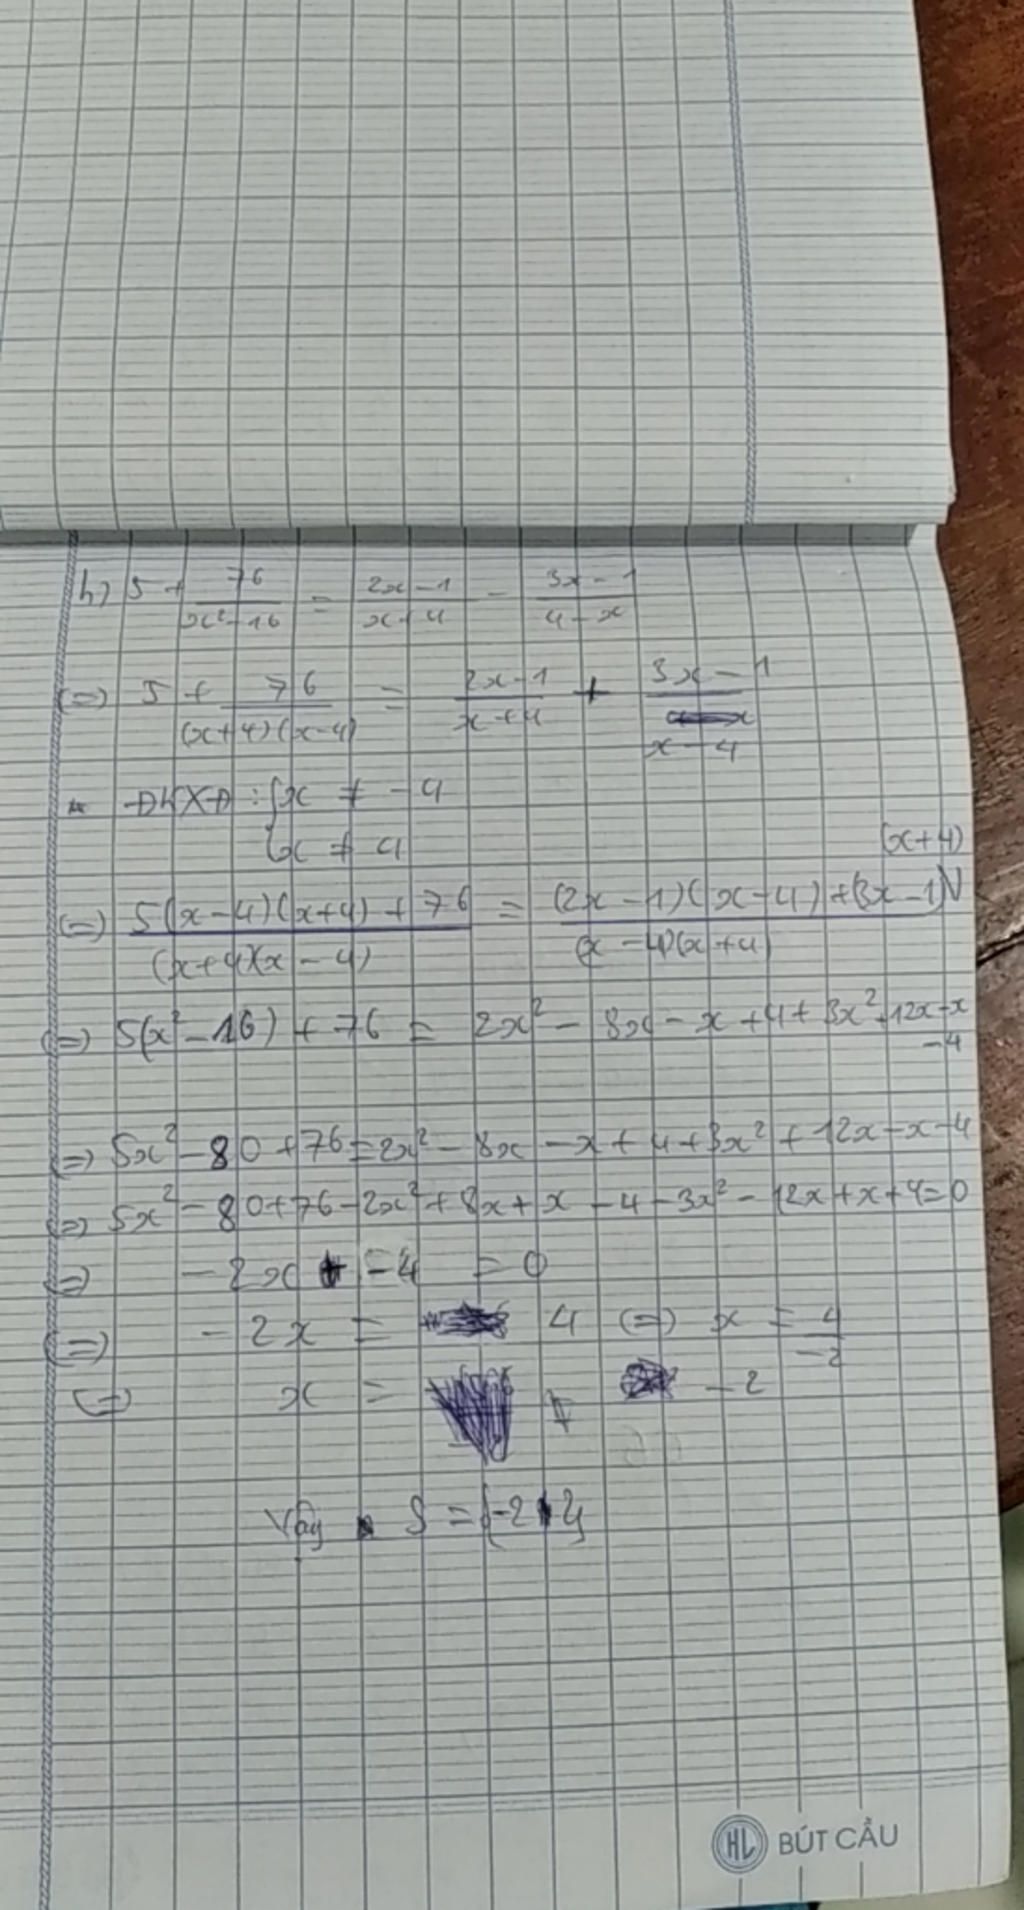 h) 5 + 76/(x² - 16) = (2x - 1)/(x + 4) - (3x - 1)/(4 - x)
(=) 5 + 76/((x+4)(x-4)) = (2x-1)/(x+4) + (3x-1)/(x-4)
ĐKXĐ : { x ≠ -4
x ≠ 4
(=) (5(x-4)(x+4) + 76)/((x+4)(x-4)) = ((2x-1)(x-4) + (3x-1)(x+4))/((x-4)(x+4))
(=) 5(x² - 16) + 76 = 2x² - 8x - x + 4 + 3x² + 12x - x - 4
(=) 5x² - 80 + 76 = 2x² - 8x - x + 4 + 3x² + 12x - x - 4
(=) 5x² - 80 + 76 - 2x² + 8x + x - 4 - 3x² - 12x + x + 4 = 0
(=) - 2x - 4 = 0
(=) - 2x = 4 (=) x = 4/-2
(=) x = -2
Vậy S = {-2}
HL BÚT CẦU